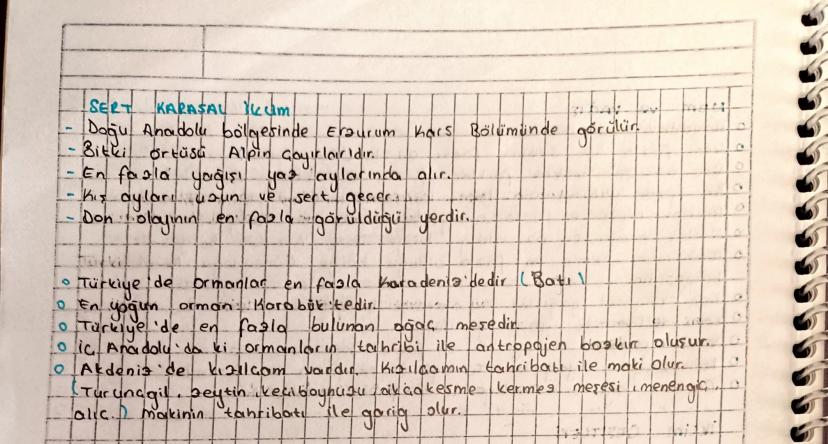 SERT KARASAL İKLİM
- Doğu Anadolu bölgesinde Erzurum Kars Bölümünde görülür.
- Bitki örtüsü Alpin Çayırlarıdır.
- En fazla yağışı yaz aylarında alır.
- Kış ayları uzun ve sert geçer.
- Don olayının en fazla görüldüğü yerdir.
o Türkiye'de ormanlar en fazla Karadeniz'dedir (Batı)
o En yoğun orman: Karabük'tedir.
o Türkiye'de en fazla bulunan ağaç meşedir.
o İç Anadolu'da ki ormanların tahribi ile antropojen bozkır oluşur.
o Akdeniz'de kızılçam vardır. Kızılçamın tahribatı ile maki olur.
(Turunçgil, zeytin, keçiboynuzu, akçakesme, kermez meşesi, menengiç,
alıç.) makinin tahribatı ile garig olur.